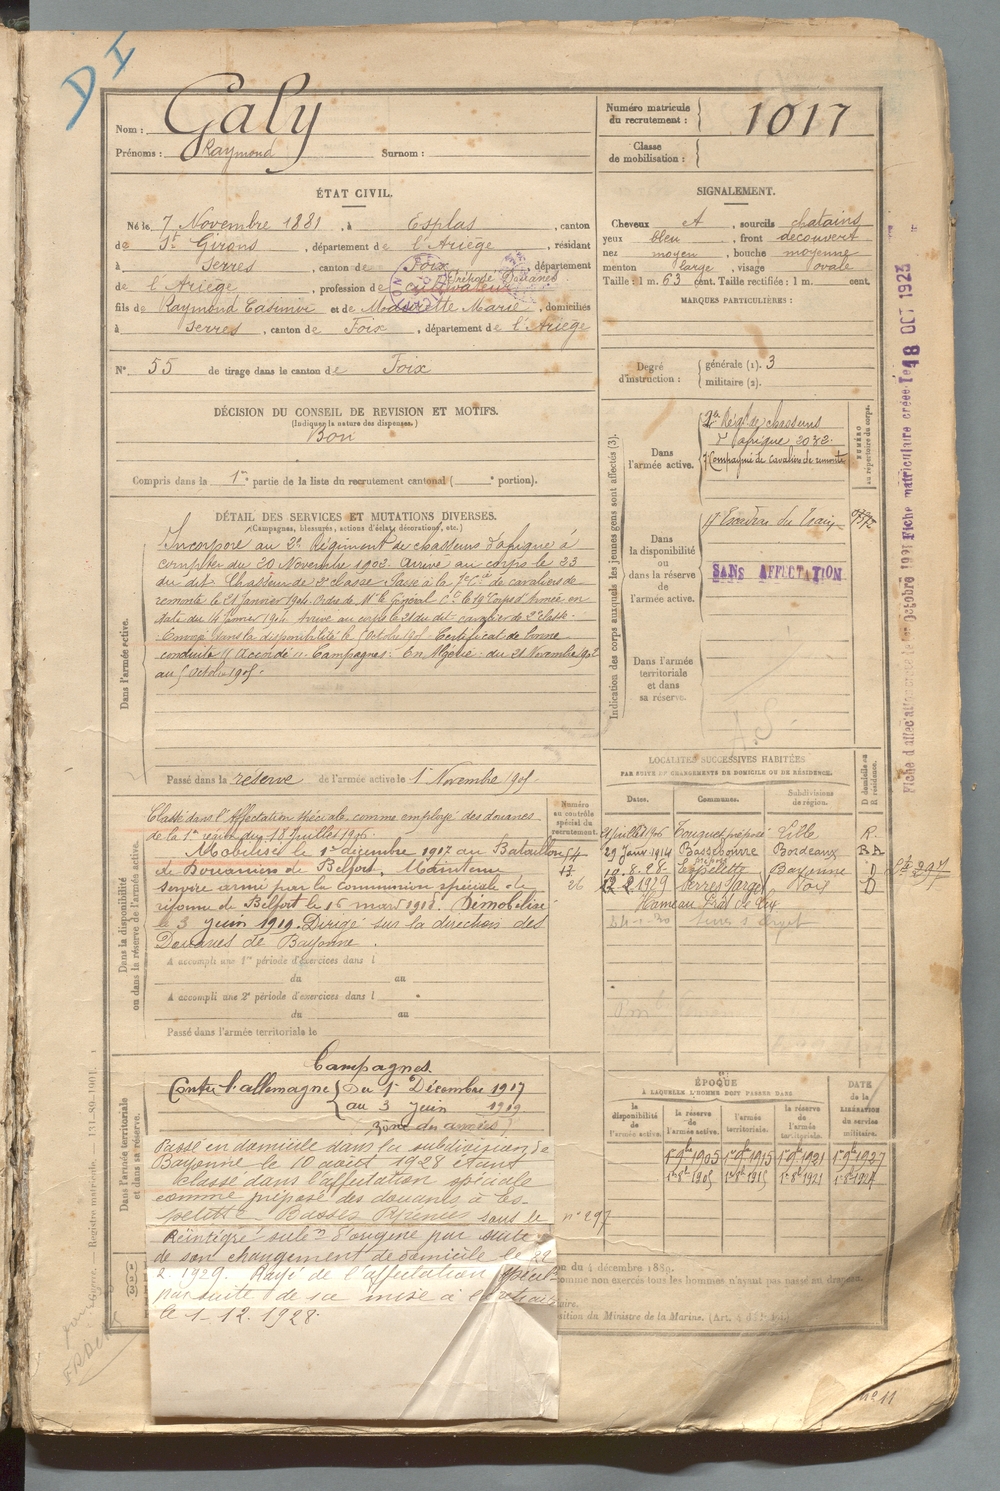 DI
Nom : Galy
Prénoms : Raymond Surnom :
Numéro matricule du recrutement : 1017
Classe de mobilisation :
ÉTAT CIVIL.
Né le 7 Novembre 1881, à Esplas, canton
de St Girons, département de l'Ariège, résidant
à Serres, canton de Foix, département
de l'Ariège, profession de cultivateur
fils de Raymond Casimir et de Marie, domiciliés
à Serres, canton de Foix, département de l'Ariège
N° 55 de tirage dans le canton de Foix
DÉCISION DU CONSEIL DE REVISION ET MOTIFS.
(Indiquer la nature des dispenses.)
Bon
Compris dans la 1re partie de la liste du recrutement cantonal ( portion).
SIGNALEMENT.
Cheveux , sourcils chatains
yeux bleu, front découvert
nez moyen, bouche moyenne
menton large, visage ovale
Taille : 1 m. 63 cent. Taille rectifiée : 1 m. cent.
MARQUES PARTICULIÈRES :
Degré d'instruction : générale (1). 3
militaire (2).
DÉTAIL DES SERVICES ET MUTATIONS DIVERSES.
(Campagnes, blessures, actions d'éclat, décorations, etc.)
Dans l'armée active.
Incorporé au 2e Régiment de chasseurs d'afrique à
compter du 20 Novembre 1902. Arrivé au corps le 23
du dit. Chasseur de 2e classe. Passé à la 7e Cie de cavaliers de
remonte le 21 Janvier 1904. Ordre de Mr le Général Ct le 19e Corps d'Armée en
date du 14 février 1904. Arrivé au corps le 21 du dit. cavalier de 2e classe.
Envoyé dans la disponibilité le 5 Octobre 1905. Certificat de bonne
conduite "Accordé". Campagnes : En Algérie : du 21 Novembre 1902
au 5 Octobre 1905.
Passé dans la réserve de l'armée active le 1 Novembre 1905.
Indication des corps auxquels les jeunes gens sont affectés (3).
NUMÉRO au répertoire du corps.
Dans l'armée active.
2e Régt de chasseurs
d'afrique 2032.
7 Compagnie de cavaliers de remonte
Dans la disponibilité ou dans la réserve de l'armée active.
Escadron du Train
SANS AFFECTATION
Dans l'armée territoriale et dans sa réserve.
Fiche matriculaire créée le 18 OCT 1923
Dans la disponibilité ou dans la réserve de l'armée active.
Numéro au contrôle spécial du recrutement.
Classé dans l'Affectation spéciale comme employé des douanes
de la 1re région du 18 Juillet 1906.
Mobilisé le 1er décembre 1917 au Bataillon
de Douaniers de Belfort. Maintenu
service armé par la Commission spéciale de
réforme de Belfort le 16 mars 1918. Démobilisé
le 3 juin 1919. Dirigé sur la direction des
Douanes de Bayonne.
A accompli une 1re période d'exercices dans l
du au
A accompli une 2e période d'exercices dans l
du au
Passé dans l'armée territoriale le
LOCALITÉS SUCCESSIVES HABITÉES
PAR SUITE DE CHANGEMENTS DE DOMICILE OU DE RÉSIDENCE.
Dates. Communes. Subdivisions de région. D domicile ou R résidence.
Juillet 1906 Lille R
29 Janv 1914 Bassebourre Bordeaux R A
10.8.28 Espelette Bayonne D
2 1929 Serres Foix D
Hameau
Dans l'armée territoriale et dans sa réserve.
Campagnes.
Contre l'allemagne { du 1er Décembre 1917
au 3 juin 1919
Zône des armées
Passé en domicile dans la subdivision de
Bayonne le 10 août 1928 étant
classé dans l'affectation spéciale
comme préposé des douanes à Es-
pelette Basses Pyrénées sous le n° 297
Réintégré subon d'origine par suite
de son changement de domicile le
2.1929. Rayé de l'affectation spéciale
par suite de sa mise à la retraite
le 1-12.1928.
ÉPOQUE
À LAQUELLE L'HOMME DOIT PASSER DANS
la disponibilité de l'armée active. la réserve de l'armée active. l'armée territoriale. la réserve de l'armée territoriale. DATE de la LIBÉRATION du service militaire.
1er 9bre 1905 1er 9bre 1915 1er 9bre 1921 1er 9bre 1927
1er 8bre 1905 1er 8bre 1915 1er 8bre 1921
on du 4 décembre 1889.
comme non exercés tous les hommes n'ayant pas passé au drapeau.
sition du Ministre de la Marine.
Registre matricule. 131-89-1901.